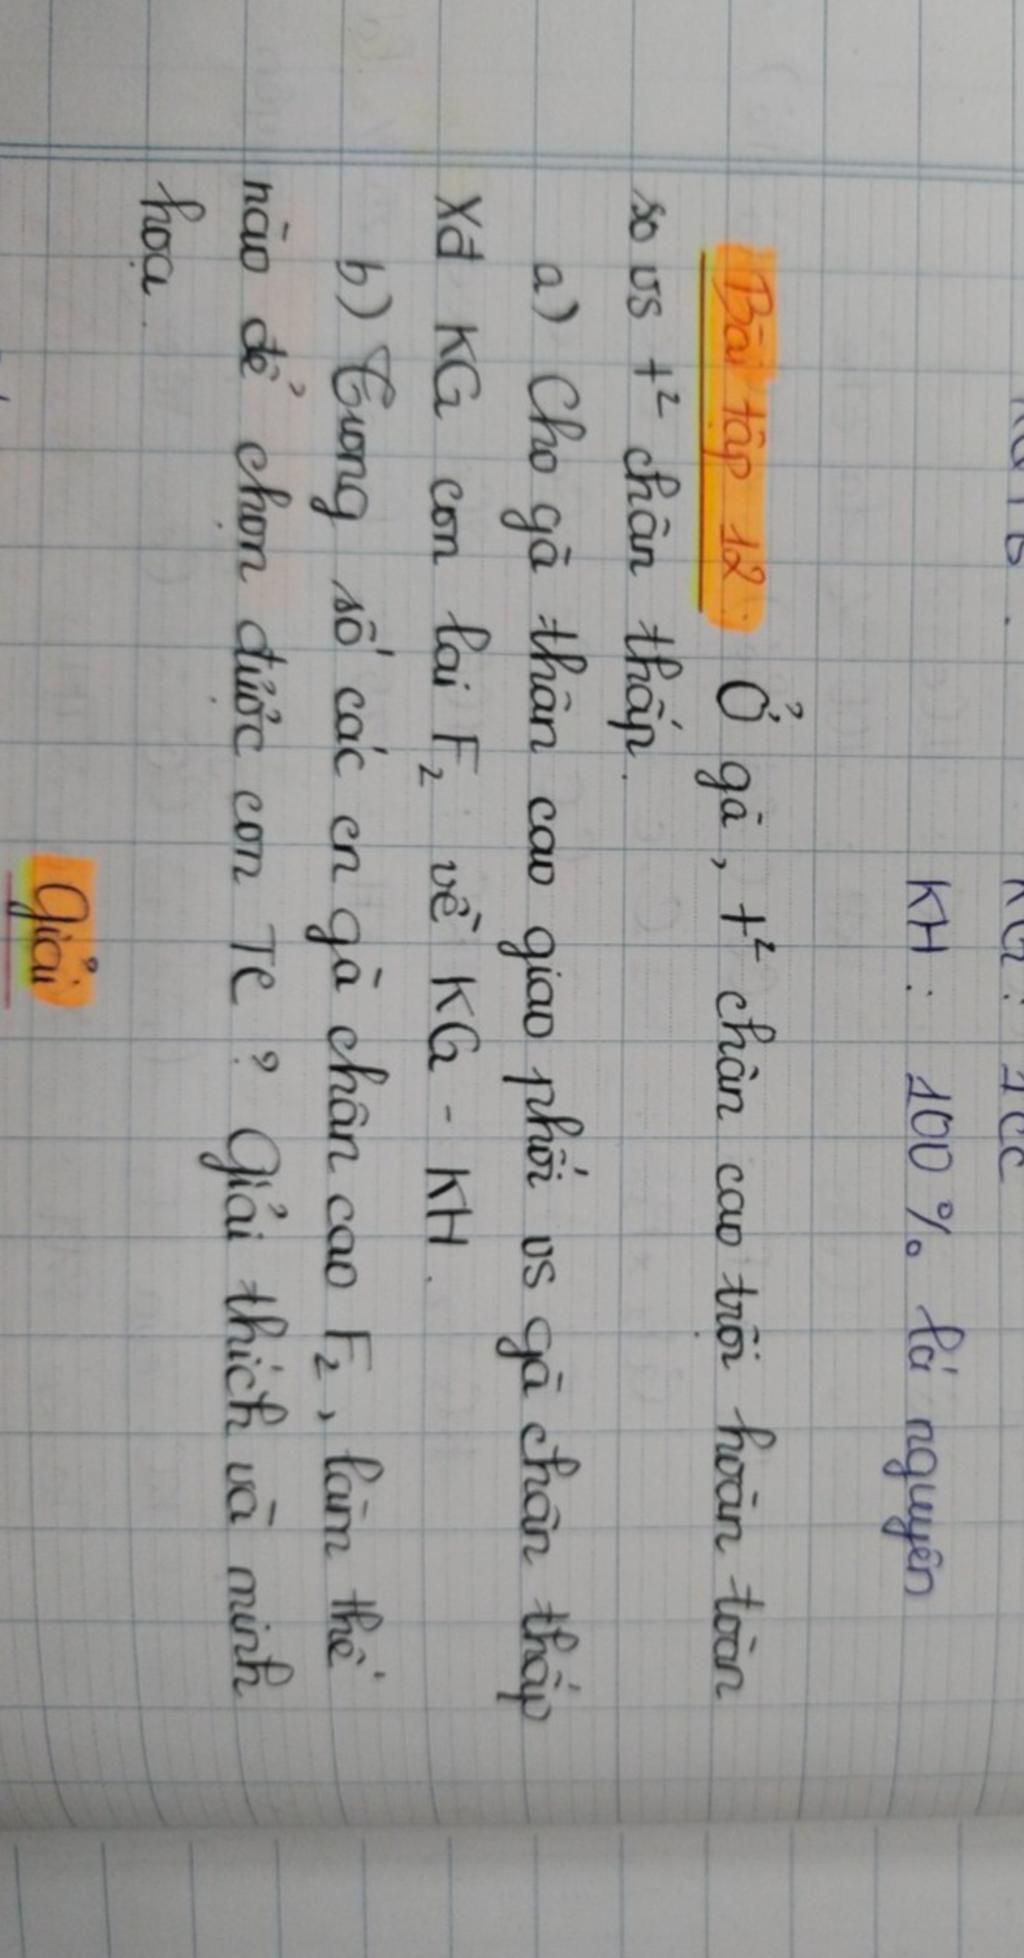 KH : 100% lá nguyên
Bài tập 12: Ở gà, t² chân cao trội hoàn toàn
so vs t² chân thấp.
a) Cho gà thân cao giao phối vs gà chân thấp
Xđ KG con lai F₂ về KG - KH.
b) Trong số các cn gà chân cao F₂, làm thế
nào để chọn được con TC ? Giải thích và minh
họa.
Giải